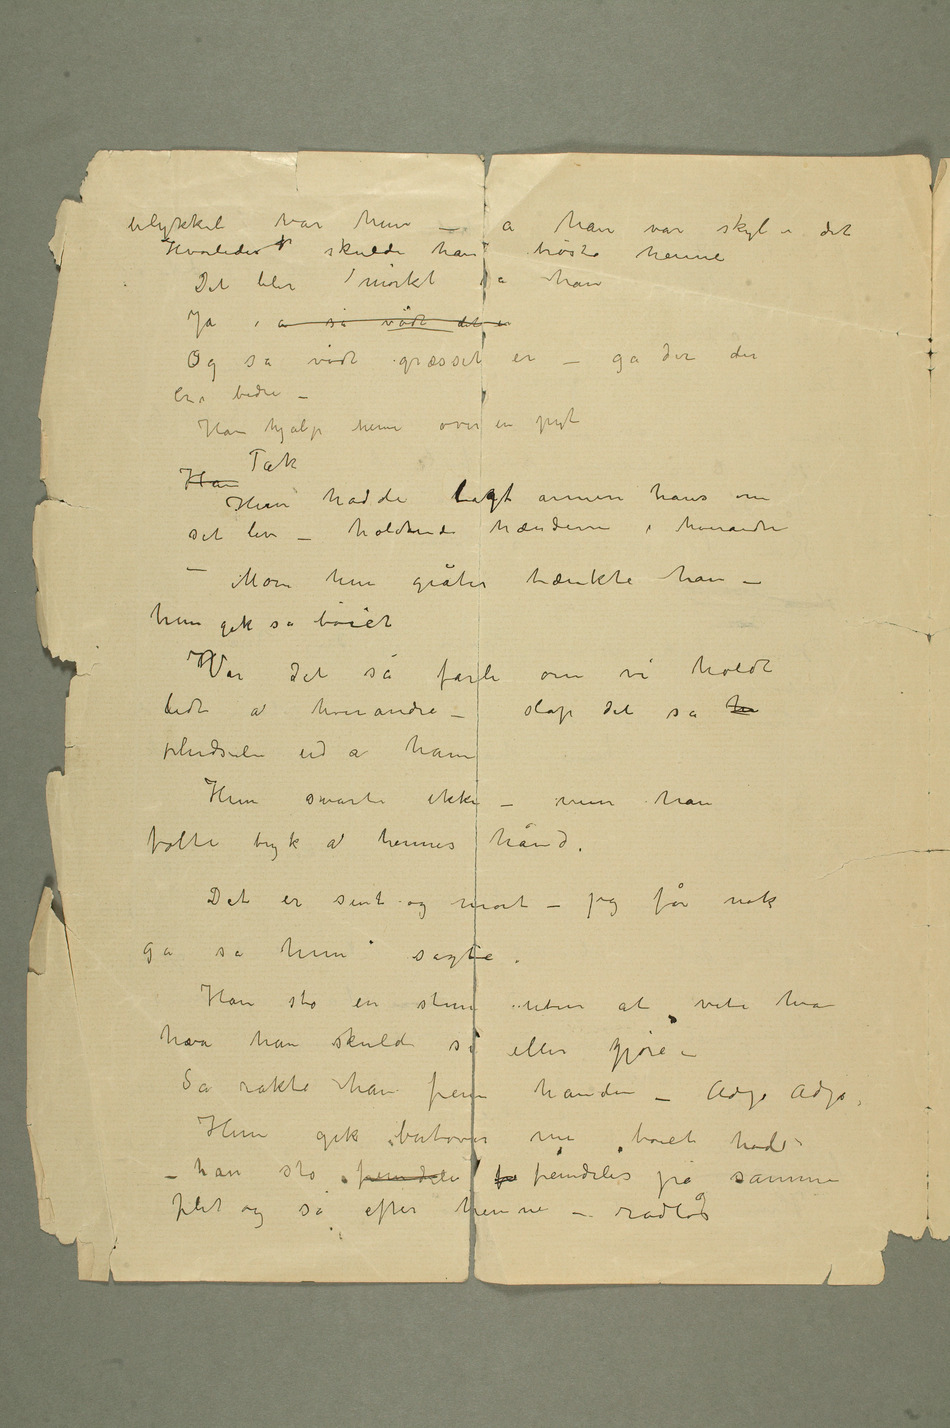 ulykkel var hun – å han var skyl i det
Hvorledes skulde han trøste henne
Det blir mørkt sa han
Ja, å så vådt det er
Og så vådt græsset er – gå der der
er bedre –
Han hjalp henne over en pyt
Tak
Han
Hun hadde lagt armen hans om
sit liv – holdende hænderne i hinanden
– Mon hun gråter tænkte han –
hun gik så bøiet
Var det så farli om vi holdt
lidt a hinandre – slap det så
pludseli ud a ham
Hun svarte ikke – men han
følte tryk a hennes hånd.
Det er sent og mørt – jeg får nok
gå sa hun sagte.
Han sto en stun uten at vite hva
hva han skulde si eller gjøre –
Så rakte han frem hånden – Adjø Adjø,
Hun gik bortover me bøiet hode
– han sto fremdeles fr fremdeles på samme
plet og så efter henne – rådløs